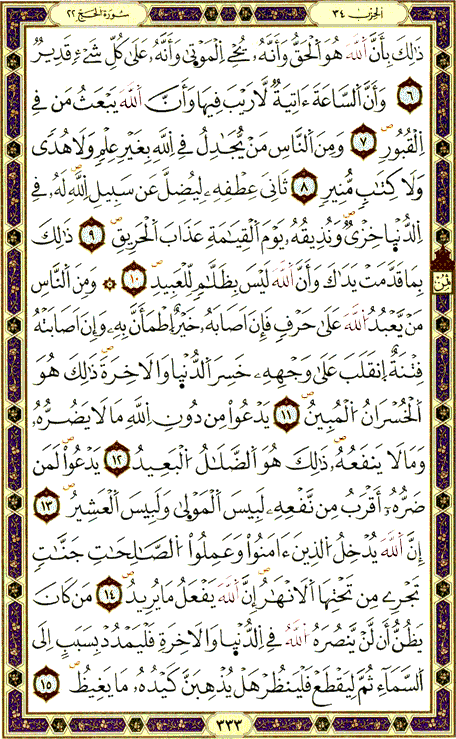 سورة الحج ٢٢
الحزب ٣٤
ذَٰلِكَ بِأَنَّ اَ۬للَّهَ هُوَ اَ۬لْحَقُّ وَأَنَّهُۥ يُحْيِ اِ۬لْمَوْتَىٰ وَأَنَّهُۥ عَلَىٰ كُلِّ شَےْءٖ قَدِيرٞ
٦ وَأَنَّ اَ۬لسَّاعَةَ ءَاتِيَةٞ لَّا رَيْبَ فِيهَا وَأَنَّ اَ۬للَّهَ يَبْعَثُ مَن فِے
اِ۬لْقُبُورِ ٧ وَمِنَ اَ۬لنَّاسِ مَنْ يُّجَٰدِلُ فِے اِ۬للَّهِ بِغَيْرِ عِلْمٖ وَلَا هُدٗى
وَلَا كِتَٰبٖ مُّنِيرٖ ٨ ثَانِيَ عِطْفِهِۦ لِيُضِلَّ عَن سَبِيلِ اِ۬للَّهِ لَهُۥ فِے
اِ۬لدُّنْيَا خِزْيٞ وَنُذِيقُهُۥ يَوْمَ اَ۬لْقِيَٰمَةِ عَذَابَ اَ۬لْحَرِيقِ ٩ ذَٰلِكَ
بِمَا قَدَّمَتْ يَدَٰكَ وَأَنَّ اَ۬للَّهَ لَيْسَ بِظَلَّٰمٖ لِّلْعَبِيدِ ١٠ ۞ وَمِنَ اَ۬لنَّاسِ
مَنْ يَّعْبُدُ اُ۬للَّهَ عَلَىٰ حَرْفٖ فَإِنْ أَصَابَهُۥ خَيْرٌ اِ۪طْمَأَنَّ بِهِۦ وَإِنْ أَصَابَتْهُ
فِتْنَةٌ اِ۪نقَلَبَ عَلَىٰ وَجْهِهِۦ خَسِرَ اَ۬لدُّنْيَا وَالْأٓخِرَةَ ذَٰلِكَ هُوَ
اَ۬لْخُسْرَانُ اُ۬لْمُبِينُ ١١ يَدْعُواْ مِن دُونِ اِ۬للَّهِ مَا لَا يَضُرُّهُۥ
وَمَا لَا يَنفَعُهُۥ ذَٰلِكَ هُوَ اَ۬لضَّلَٰلُ اُ۬لْبَعِيدُ ١٢ يَدْعُواْ لَمَن
ضَرُّهُۥٓ أَقْرَبُ مِن نَّفْعِهِۦ لَبِيسَ اَ۬لْمَوْلَىٰ وَلَبِيسَ اَ۬لْعَشِيرُ ١٣
إِنَّ اَ۬للَّهَ يُدْخِلُ اُ۬لذِينَ ءَامَنُواْ وَعَمِلُواْ اُ۬لصَّٰلِحَٰتِ جَنَّٰتٖ
تَجْرِے مِن تَحْتِهَا اَ۬لْأَنْهَٰرُ إِنَّ اَ۬للَّهَ يَفْعَلُ مَا يُرِيدُ ١٤ مَن كَانَ
يَظُنُّ أَن لَّنْ يَّنصُرَهُ اُ۬للَّهُ فِے اِ۬لدُّنْيَا وَالْأٓخِرَةِ فَلْيَمْدُدْ بِسَبَبٍ إِلَى
اَ۬لسَّمَآءِ ثُمَّ لِيَقْطَعْ فَلْيَنظُرْ هَلْ يُذْهِبَنَّ كَيْدُهُۥ مَا يَغِيظُ ١٥
ثمن
٣٣٣